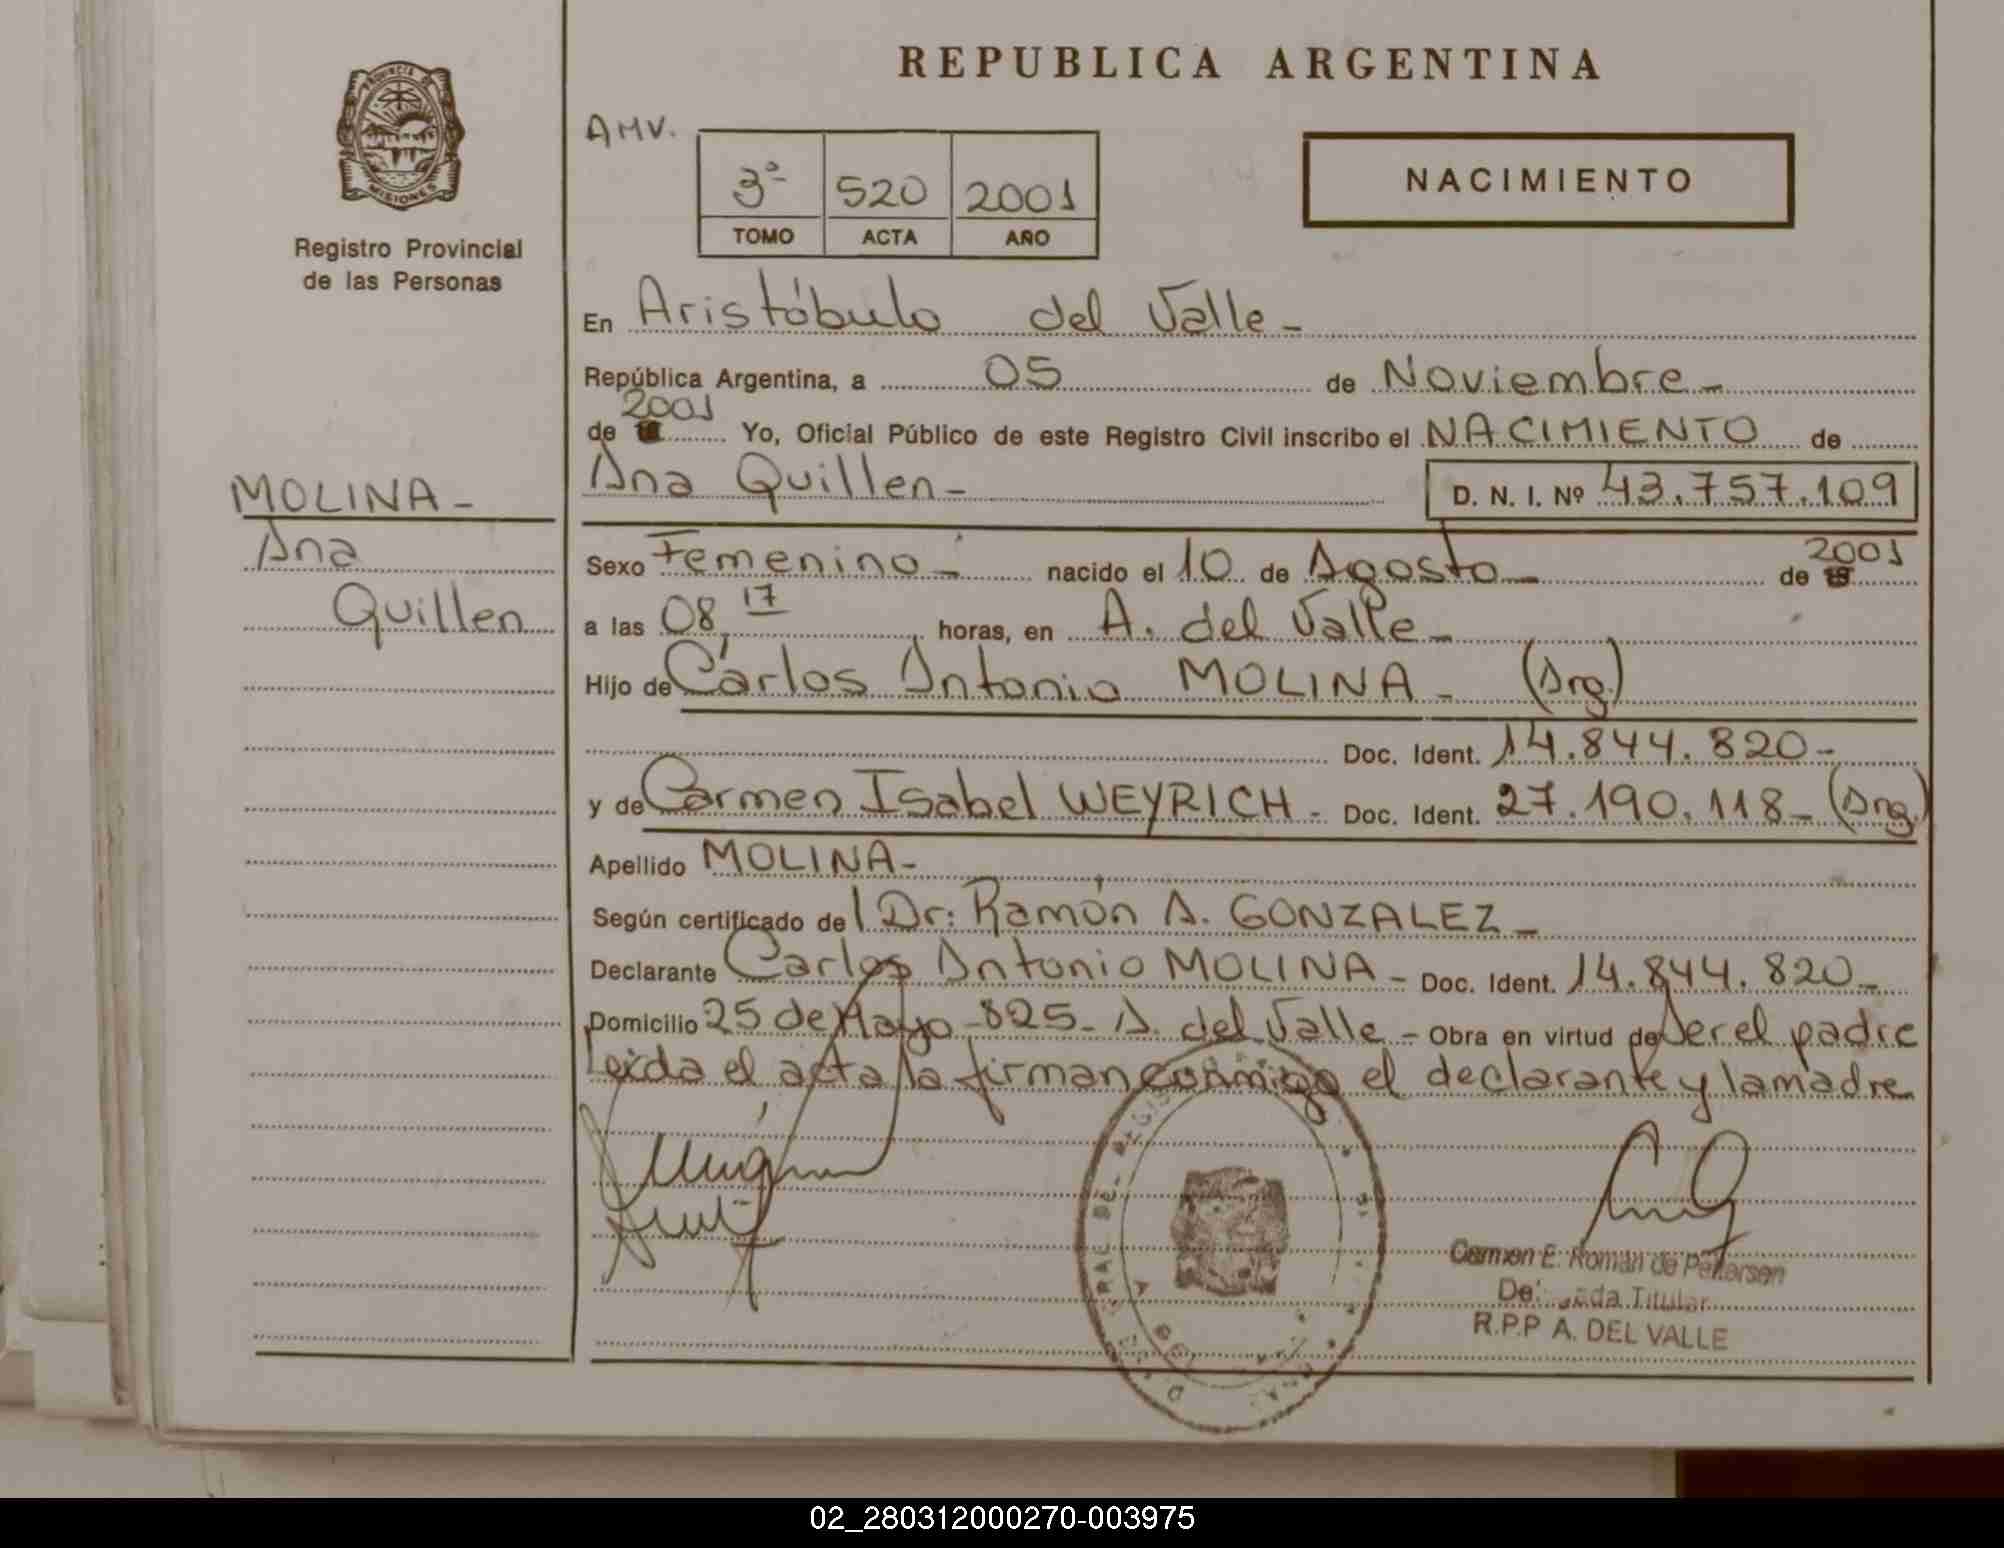 REPUBLICA ARGENTINA
PROVINCIA DE
MISIONES
Registro Provincial
de las Personas
AMV.
3ª 520 2001
TOMO ACTA AÑO
NACIMIENTO
En Aristóbulo del Valle -
República Argentina, a 05 de Noviembre -
2001
de Yo, Oficial Público de este Registro Civil inscribo el NACIMIENTO de
Ana Quillen - D. N. I. Nº 43.757.109
MOLINA -
Ana
Quillen
Sexo Femenino - nacido el 10 de Agosto - de 2001
a las 08,17 horas, en A. del Valle -
Hijo de Carlos Antonio MOLINA - (Arg.)
Doc. Ident. 14.844.820 -
y de Carmen Isabel WEYRICH - Doc. Ident. 27.190.118 - (Arg.)
Apellido MOLINA -
Según certificado de Dr. Ramón A. GONZALEZ -
Declarante Carlos Antonio MOLINA - Doc. Ident. 14.844.820 -
Domicilio 25 de Mayo - 825 - A. del Valle - Obra en virtud de Ser el padre
Leída el acta la firman conmigo el declarante y la madre
Carmen E. Roman de Petersen
Titular
R.P.P A. DEL VALLE
02_280312000270-003975